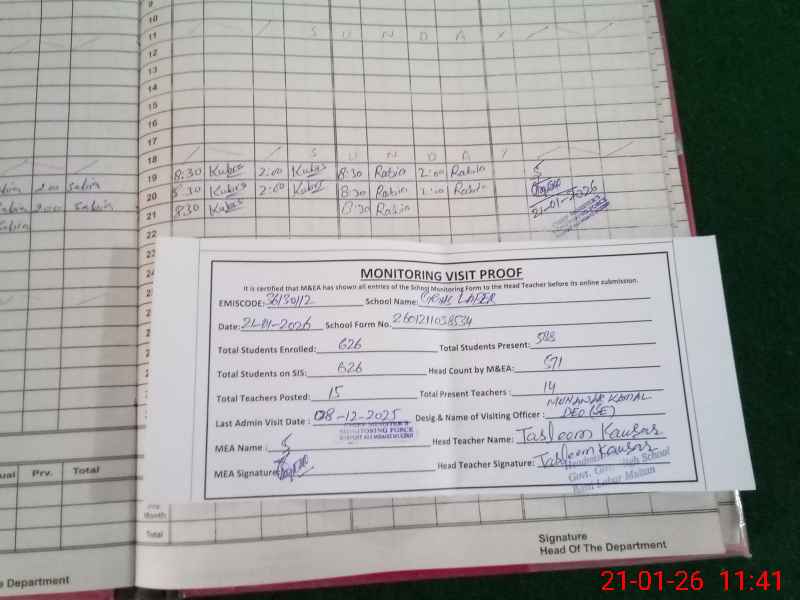 9
10
11 S U N D A Y
12
13
14
15
16
17
18 S U N D A Y
19 8:30 Kubra 2:00 Kubra 8:30 Rabin 2:00 Rabin
20 8:30 Kubra 2:00 Kubra 8:30 Rabin 2:00 Rabin
21 8:30 Kubra 8:30 Rabin 21-01-2026
22
2:00 Sabin
2:00 Sabin
MONITORING VISIT PROOF
It is certified that M&EA has shown all entries of the School Monitoring Form to the Head Teacher before its online submission.
EMISCODE: 36130112 School Name: GGHS LABER
Date: 21-01-2026 School Form No. 2601211038534
Total Students Enrolled: 626 Total Students Present: 588
Total Students on SIS: 626 Head Count by M&EA: 571
Total Teachers Posted: 15 Total Present Teachers : 14
Last Admin Visit Date : 08-12-2025 Desig & Name of Visiting Officer : MUNAWAR KAMAL
DEO (SE)
MONITORING FORCE
MEA Name : Head Teacher Name: Tasleem Kausar
MEA Signature Head Teacher Signature: Tasleem Kausar
Month
Total
ual Prv. Total
Signature
Head Of The Department
e Department
21-01-26 11:41